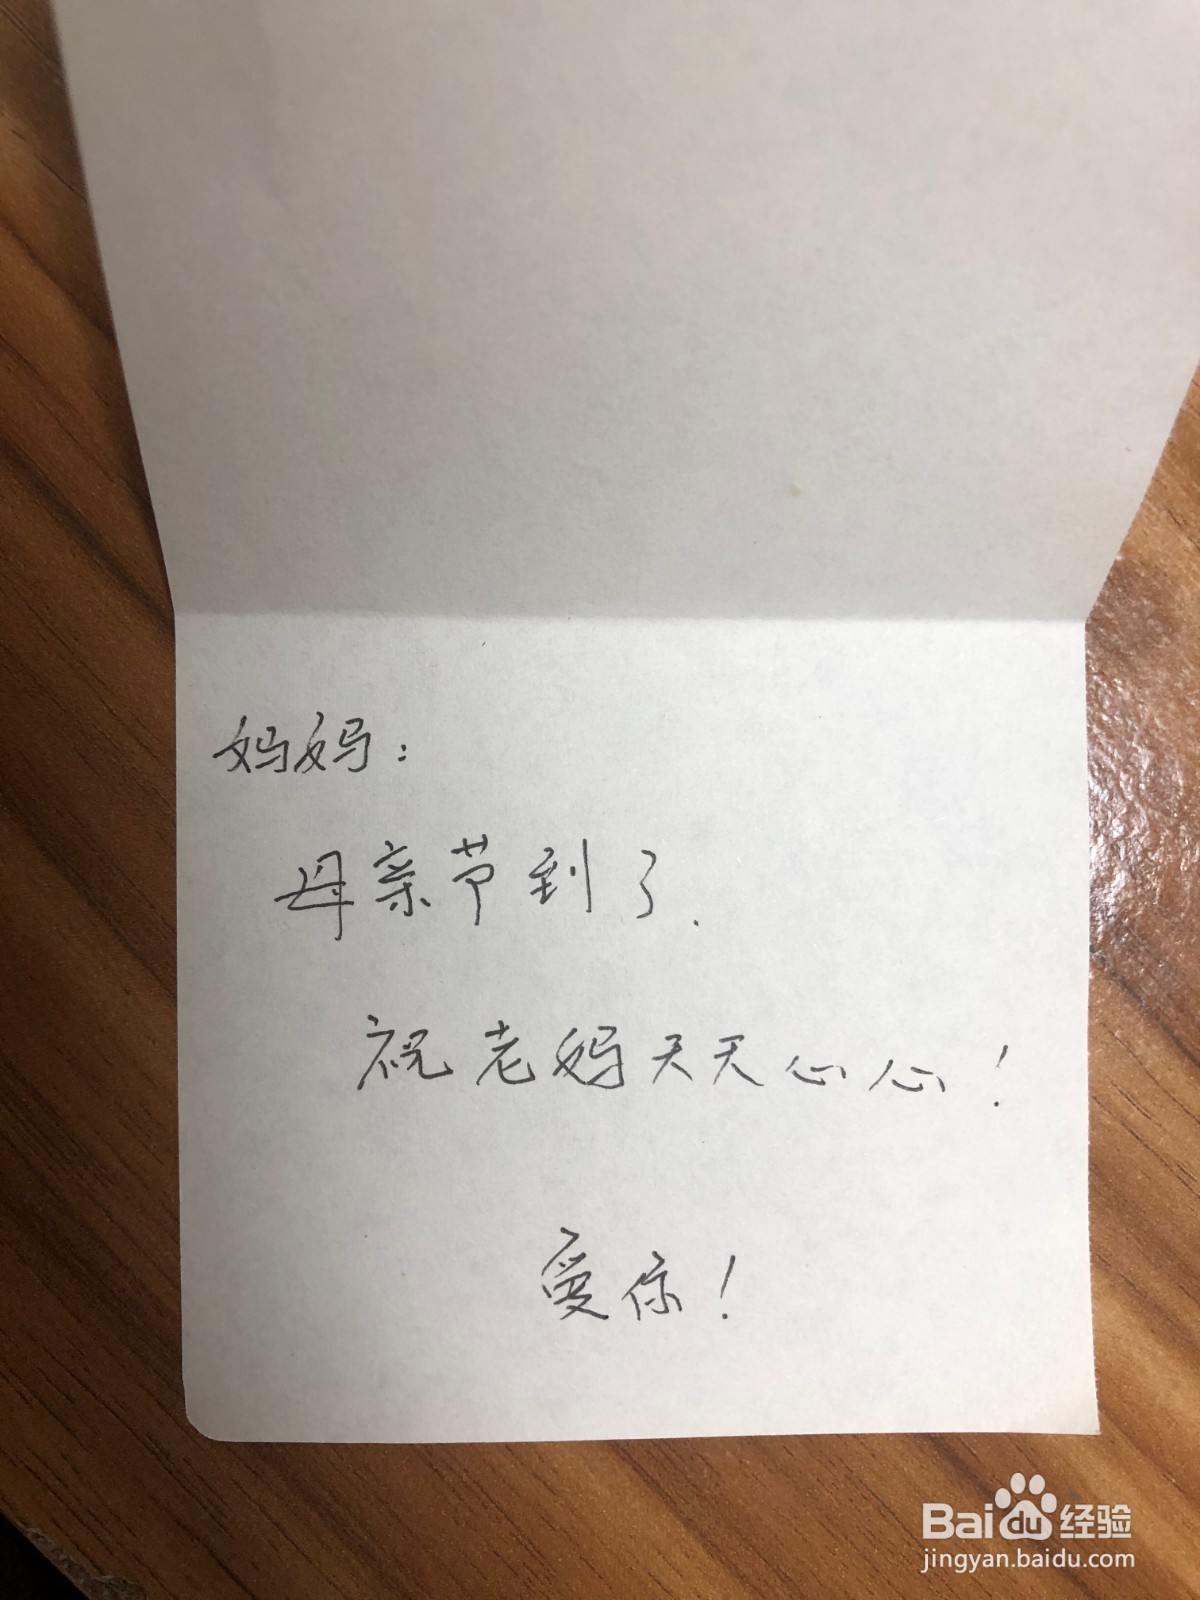 妈妈：
母亲节到了.
祝老妈天天心心！
爱你！
Bai du 经验
jingyan.baidu.com